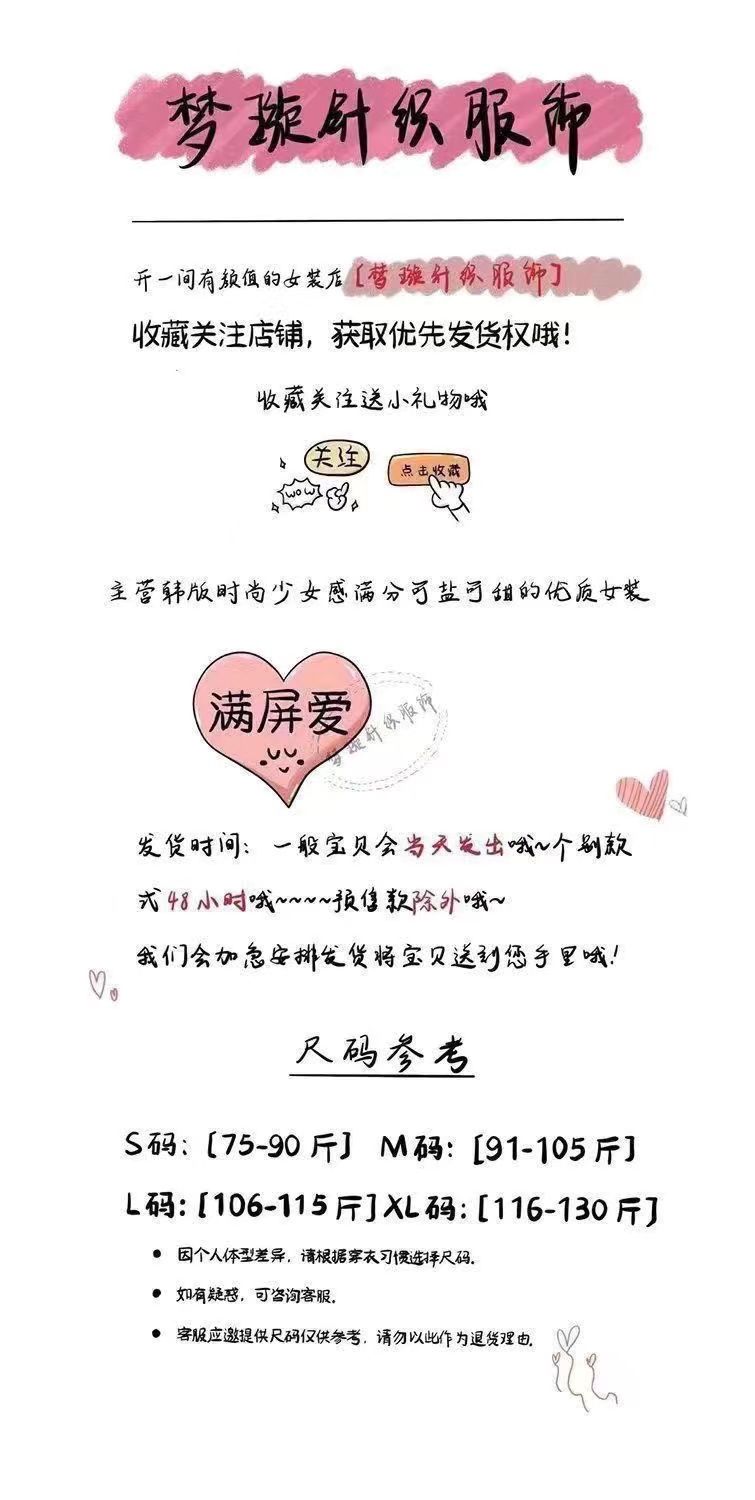 梦璇针织服饰
开一间有颜值的女装店[梦璇针织服饰]
收藏关注店铺，获取优先发货权哦！
收藏关注送小礼物哦
关注
点击收藏
WOW
主营韩版时尚少女感满分可盐可甜的优质女装
满屏爱
梦璇针织服饰
发货时间：一般宝贝会当天发出哦~个别款
式48小时哦~~~~预售款除外哦~
我们会加急安排发货将宝贝送到您手里哦！
尺码参考
S码：[75-90斤] M码：[91-105斤]
L码：[106-115斤] XL码：[116-130斤]
• 因个人体型差异，请根据穿衣习惯选择尺码。
• 如有疑惑，可咨询客服。
• 客服应邀提供尺码仅供参考，请勿以此作为退货理由。